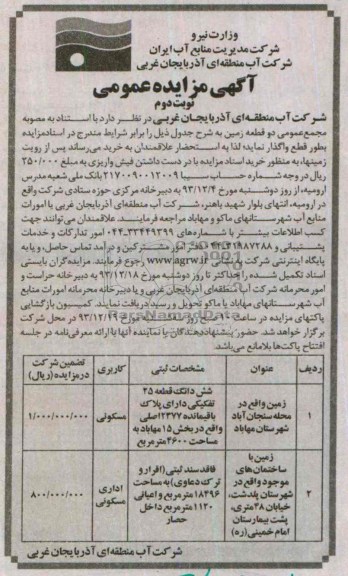 وزارت نیرو
شرکت مدیریت منابع آب ایران
شرکت آب منطقه‌ای آذربایجان غربی
آگهی مزایده عمومی
نوبت دوم
شرکت آب منطقه‌ای آذربایجان غربی در نظر دارد با استناد به مصوبه
مجمع عمومی دو قطعه زمین به شرح جدول ذیل را برابر شرایط مندرج در اسناد مزایده
بطور قطع واگذار نماید؛ لذا به استحضار علاقمندان به خرید می‌رساند پس از رویت
زمینها، به منظور خرید اسناد مزایده با در دست داشتن فیش واریزی به مبلغ ۲۵۰/۰۰۰
ریال در وجه شماره حساب سیبا ۲۱۷۰۰۹۰۰۱۲۰۰۹ بانک ملی شعبه مدرس
ارومیه، از روز دوشنبه مورخ ۹۳/۱۲/۴ به دبیرخانه مرکزی حوزه ستادی شرکت واقع
در ارومیه، انتهای بلوار شهید باهنر، شرکت آب منطقه‌ای آذربایجان غربی یا امورات
منابع آب شهرستانهای ماکو و مهاباد مراجعه فرمایند. علاقمندان می‌توانند جهت
کسب اطلاعات بیشتر با شماره‌های ۳۳۴۴۹۳۹۹-۰۴۴ امور تدارکات و خدمات
پشتیبانی و ۳۱۹۸۷۲۸۸ دفتر امور مشترکین و درآمد تماس حاصل، و یا به
پایگاه اینترنتی شرکت به نشانی www.agrw.ir رجوع فرمایند. مزایده‌گران بایستی
اسناد تکمیل شده را حداکثر تا روز دوشنبه مورخ ۹۳/۱۲/۱۸ به دبیرخانه حراست و
امور محرمانه شرکت آب منطقه‌ای آذربایجان غربی و یا دبیرخانه محرمانه امورات منابع
آب شهرستانهای مهاباد یا ماکو تحویل و رسید دریافت نمایند. کمیسیون بازگشایی
پاکتهای مزایده در ساعت ۱۰ صبح روز سه شنبه مورخ ۹۳/۱۲/۱۹ در محل شرکت
برگزار خواهد شد. حضور پیشنهاددهندگان یا نماینده آنها با ارائه معرفی‌نامه در جلسه
افتتاح پاکت‌ها بلامانع می‌باشد.
ردیف عنوان مشخصات ثبتی کاربری تضمین شرکت در مزایده (ریال)
۱ زمین واقع در محله سنجان آباد شهرستان مهاباد شش دانگ قطعه ۲۵ تفکیکی دارای پلاک باقیمانده ۲۳۷۷ اصلی واقع در بخش ۱۵ مهاباد به مساحت ۴۶۰۰ مترمربع مسکونی ۱/۰۰۰/۰۰۰/۰۰۰
۲ زمین با ساختمان‌های موجود واقع در شهرستان پلدشت، خیابان ۴۸متری، پشت بیمارستان امام خمینی (ره) فاقد سند ثبتی (اقرار و ترک دعاوی) به مساحت ۱۸۴۹۶ مترمربع و اعیانی ۱۱۲۰ مترمربع داخل حصار اداری مسکونی ۸۰۰/۰۰۰/۰۰۰
شرکت آب منطقه‌ای آذربایجان غربی